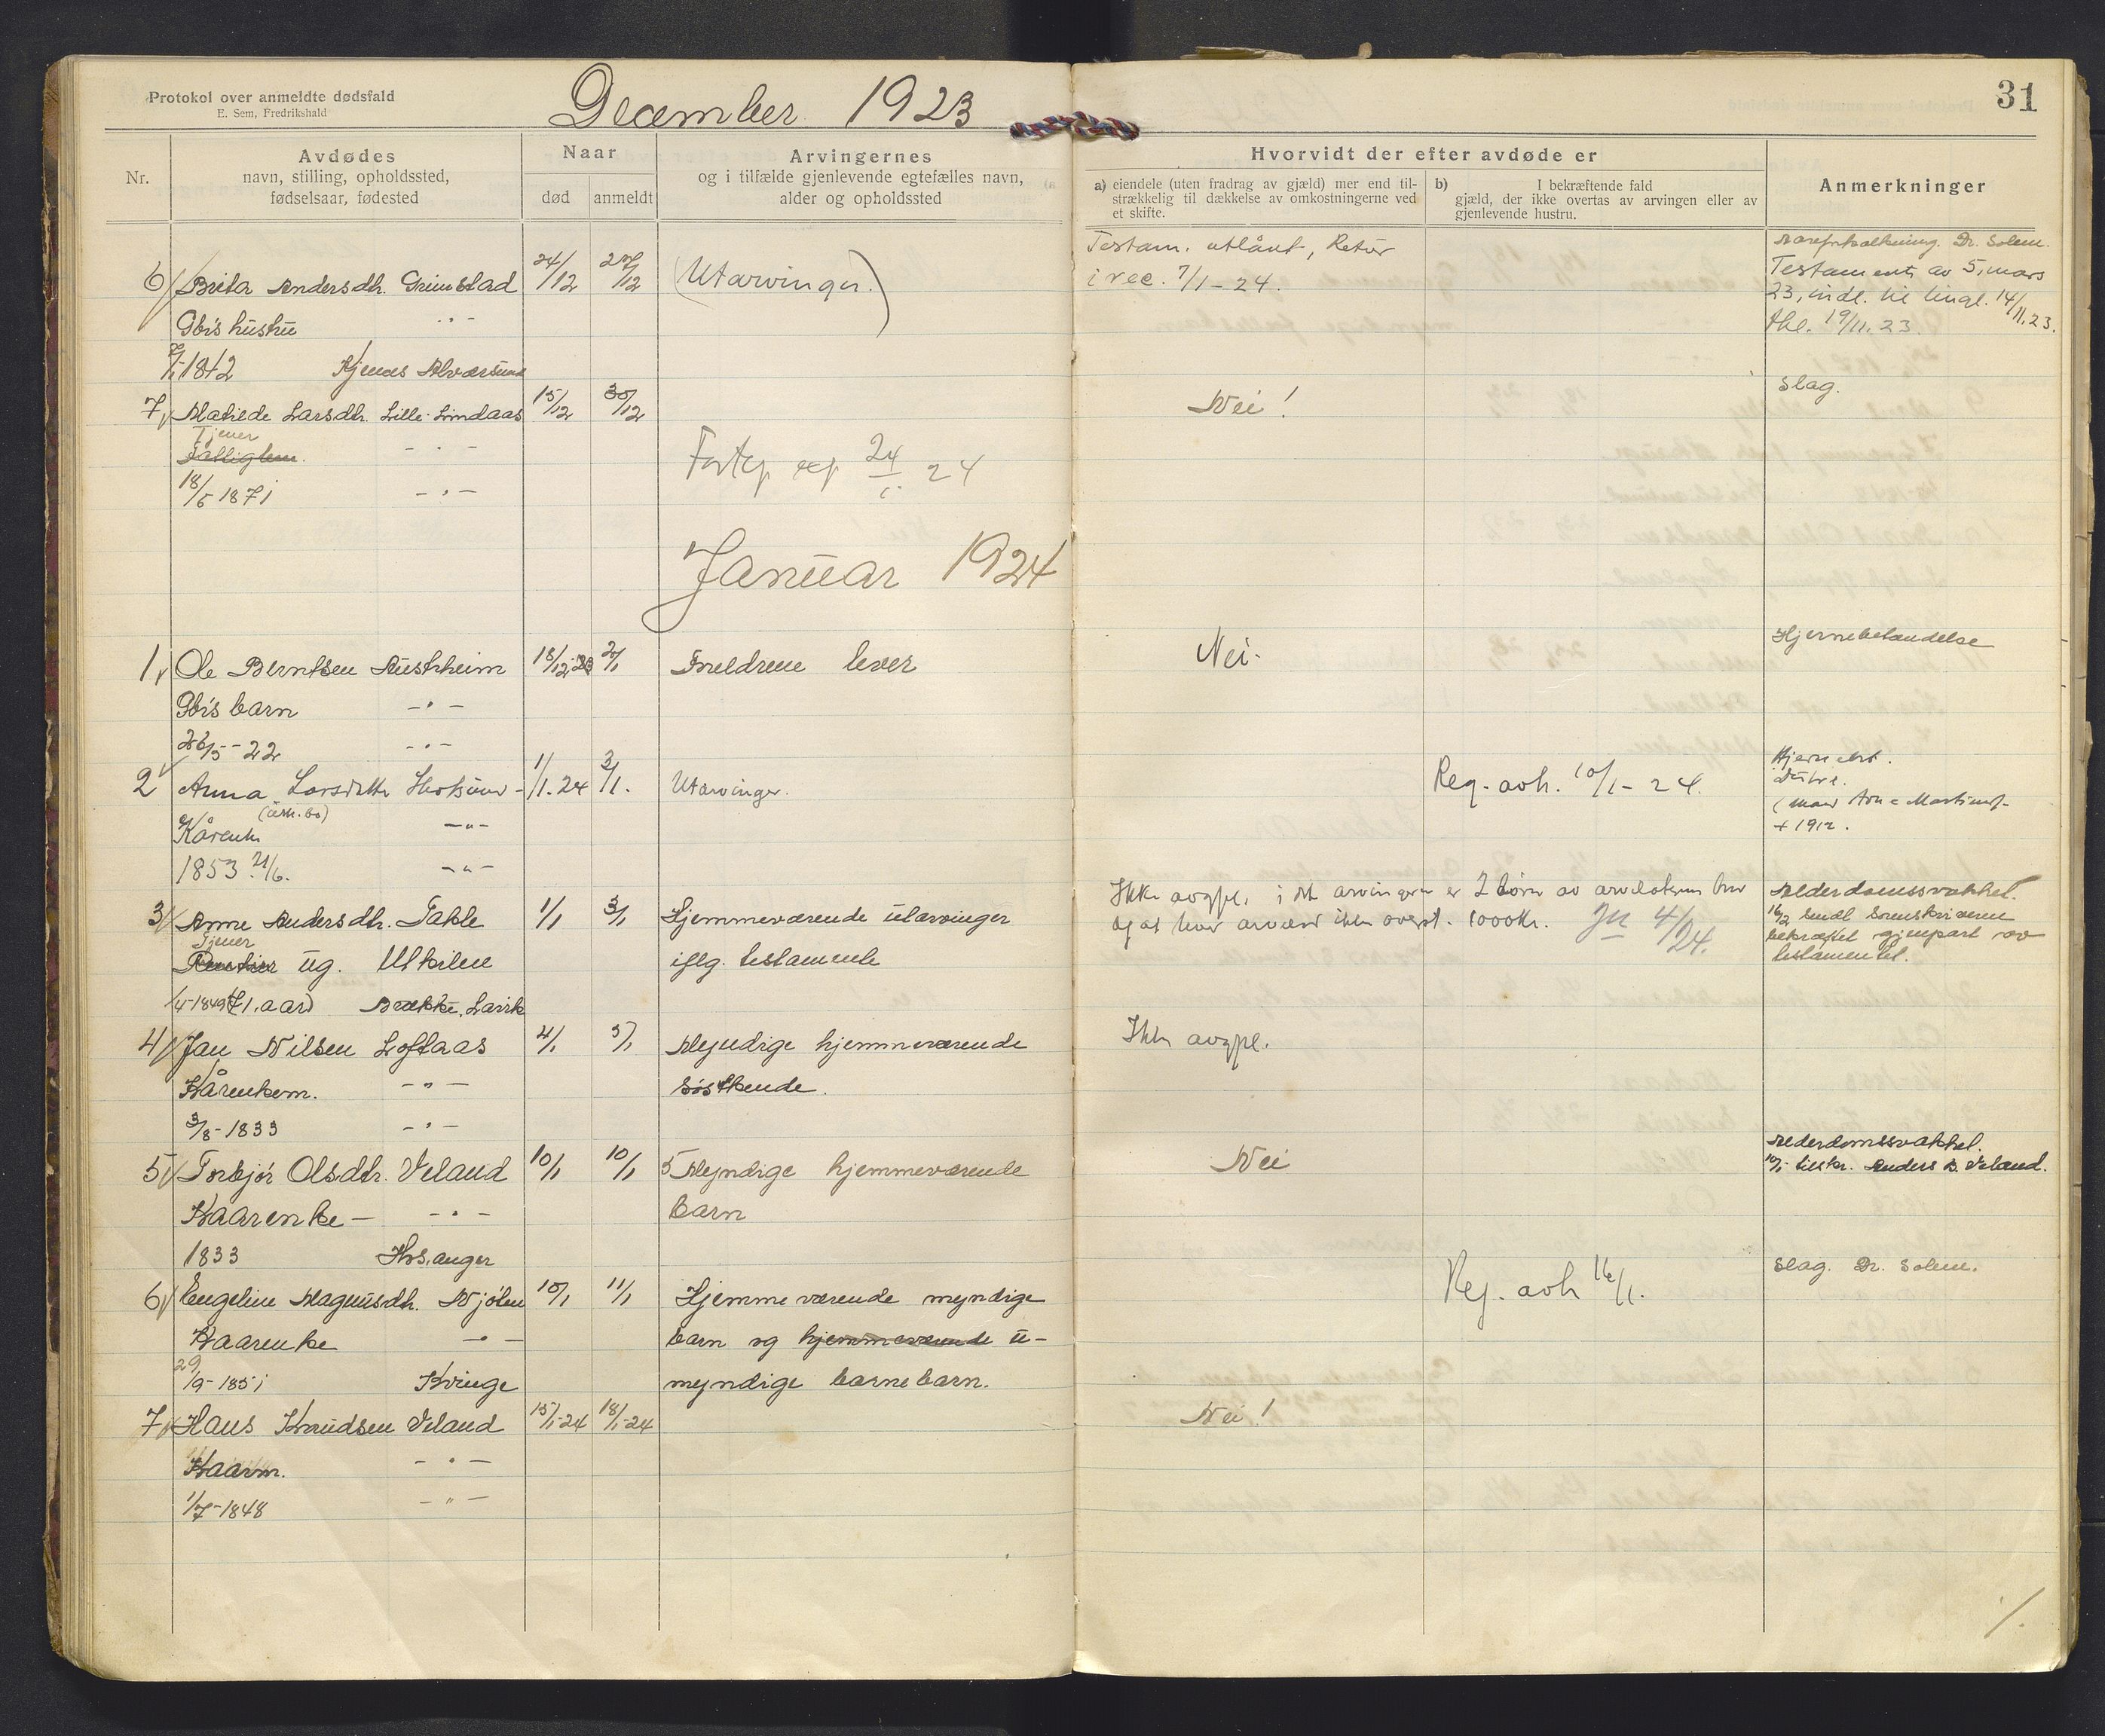 Protokol over anmeldte dødsfald
E. Sem, Fredrikshald
December 1923
31
Nr.
Avdødes
navn, stilling, opholdssted,
fødselsaar, fødested
Naar
død
anmeldt
Arvingernes
og i tilfælde gjenlevende egtefælles navn,
alder og opholdssted
Hvorvidt der efter avdøde er
a) eiendele (uten fradrag av gjæld) mer end til-
strækkelig til dækkelse av omkostningerne ved
et skifte.
b) I bekræftende fald
gjæld, der ikke overtas av arvingen eller av
gjenlevende hustru.
Anmerkninger
6 Brita Andersdtr. Grimstad 24/12 27/12 (Utarvinger.)
Testam. utlånt, Retur
i rec. 7/1-24.
Dr. Solem.
Testament av 5. mars
23, indl. til tingl. 14/11.23.
19/11.23.
Gbr's hustru -"-
1842 Alversund
7 Matilde Larsdtr. Lille-Lindaas 15/12 30/12
Nei!
Slag.
Tjener
Fattiglem. -"-
18/5 1871 -"-
24/1. 24
Januar 1924
1 Ole Berntsen Austrheim 18/12-23 2/1 Foreldrene lever
Nei.
Hjernebetændelse
Gbr's barn -"-
26/5-22 -"-
2 Anna Larsdatter 1/1.24 3/1. Utarvinger.
Reg. avh. 10/1-24.
+ 1912.
Kårenke -"-
1853 21/6. -"-
3 Anne Andersdtr. Takle 1/1 3/1 Hjemmeværende utarvinger
iflg. testamente
Ikke avgpl. i det arvingerne er 2 børn av
og at hver arvelod ikke overst. 1000 Kr. 4/1 24.
Alderdomssvakhet.
16/2 sendt Sorenskriveren
bekræftet gjenpart av
testamentet.
Tjener
ug. Utkilen
1/4-1849 (71 aar) Brække, Lavik
4 Jan Nilsen Loftaas 4/1 5/1 Myndige hjemmeværende
søskende.
Ikke avgpl.
Kårenkem. -"-
3/8-1833 -"-
5 Torbjør Olsdtr. Veland 10/1 10/1 5 Myndige hjemmeværende
barn
Nei
Alderdomssvakhet.
10/1 tilskr. Anders B. Veland.
Kaarenke- -"-
1833 Hosanger
6 Engeline Magnusdtr. Njølen 10/1 11/1 Hjemmeværende myndige
barn og hjemmeværende u-
myndige barnebarn.
Reg. avh 16/1.
Slag. Dr. Solem.
Kaarenke -"-
29/9-1851 Kvinge
7 Hans Knudsen Veland 15/1-24 18/1-24
Nei!
Kaarm. -"-
1/7-1848 -"-